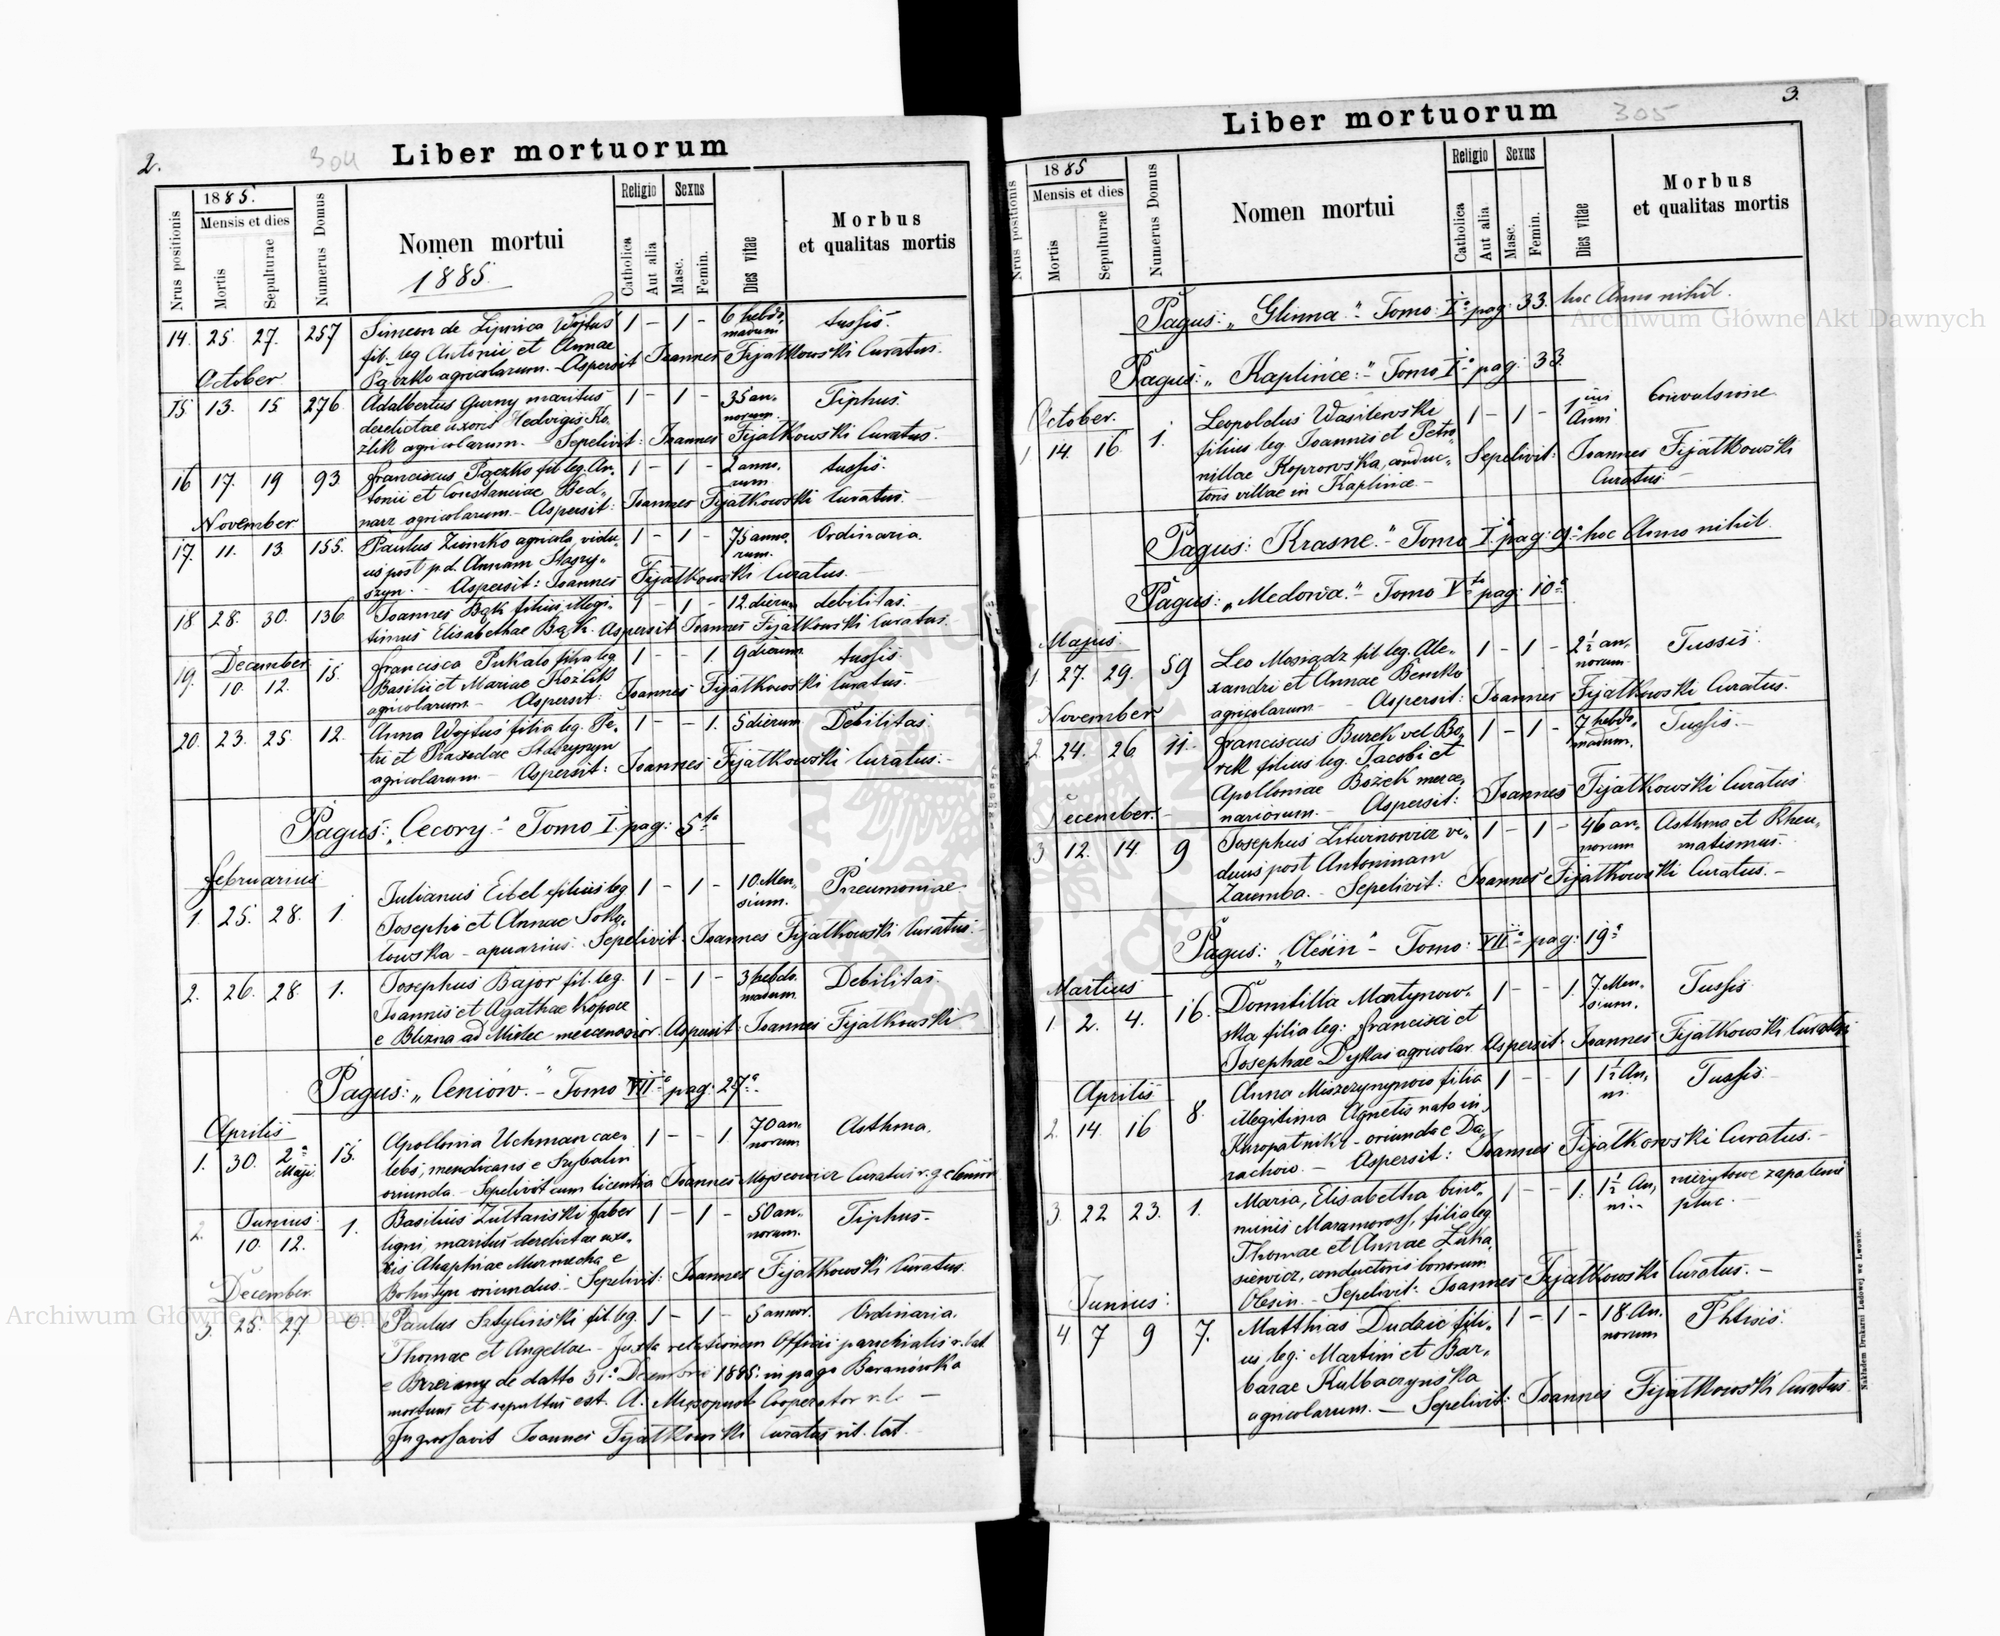 2.
304
Liber mortuorum
Nrus positionis
1885.
Mensis et dies
Mortis
Sepulturae
Numerus Domus
Nomen mortui
1885.
Religio
Catholica
Aut alia
Sexus
Masc.
Femin.
Dies vitae
Morbus
et qualitas mortis
14. 25. 27. 257 Simeon de Lipnica Wojtus 1 - 1 - 6 hebdo, madum tussis.
fil. leg Antonii et Annae
Pączko agricolarum. - Aspersit Joannes Fijałkowski Curatus.
October
15 13. 15 276 Adalbertus Gurny maritus 1 - 1 - 35 an, norum. Tiphus.
derelictae uxoris Hedvigis Ko,
źlik agricolarum. - Sepelivit: Joannes Fijałkowski Curatus.
16 17. 19 93 Franciscus Pączko fil. leg. An, 1 - 1 - 2 anno, rum tussis.
tonii et Constanciae Bed,
narz agricolarum. - Aspersit: Joannes Fijałkowski Curatus.
November
17. 11. 13 155. Paulus Zimko agricola, vidu, 1 - 1 - 75 anno, rum. Ordinaria.
us post p.d. Annam Starzy,
szyn. - Aspersit: Joannes Fijałkowski Curatus. -
18 28. 30. 136 Joannes Bąk filius illegi, 1 - 1 - 12 dierum debilitas.
timus Elisabethae Bąk. Aspersit Joannes Fijałkowski Curatus.
December
19. 10. 12. 15. Francisca Pukało filia leg. 1 - - 1. 9 dierum tussis.
Basilii et Mariae Kozlik
agricolarum. - Aspersit: Joannes Fijałkowski Curatus.
20. 23. 25. 12. Anna Wojtuś filia leg. Pe, 1 - - 1. 5 dierum Debilitas.
tri et Praxedae Starzyszyn
agricolarum. - Aspersit: Joannes Fijałkowski Curatus. -
Pagus: „Cecory" Tomo I. pag: 5ta
Februarius
1. 25. 28. 1. Julianus Eibel filius leg. 1 - 1 - 10 Men, sium. Pneumoniae
Josephi et Annae Soko,
łowska - apuarius. Sepelivit Joannes Fijałkowski Curatus. -
2. 26. 28. 1. Josephus Bajor fil. leg. 1 - 1 - 3 hebdo, madum Debilitas.
Joannis et Agathae Kopacz
e Blizna ad Mielec mercenarior. Aspersit: Joannes Fijałkowski
Pagus: „Ceniów." - Tomo VII. pag: 27a.
Aprilis
1. 30. 2a Maji 15. Apollonia Uchman cae, 1 - - 1 70 an, norum Asthma.
lebs, mendicans e Szybalin
oriunda. Sepelivit cum licentia Joannes Mojseowicz Curatus r. g. e Ceniów
2. Junius 10. 12. 1. Basilius Zultański faber 1 - 1 - 50 an, norum. Tiphus. -
ligni, maritus derelictae uxo,
ris Ahaphiae Murmecha e
Bohutyn oriundus. Sepelivit: Joannes Fijałkowski Curatus.
December.
3. 25. 27. 6. Paulus Sztyliński fil. leg. 1 - 1 - 5 annor. Ordinaria.
Thomae et Angellae - Juxta relationem Officii parochialis r. lat.
e Brzeżany de datto 31. Decembris 1885 in pago Baranówka
mortuus et sepultus est. A. Cooperator r. l. -
Ingrossavit Joannes Fijałkowski Curatus rit. lat.
3.
305
Liber mortuorum
Nrus positionis
1885
Mensis et dies
Mortis
Sepulturae
Numerus Domus
Nomen mortui
Religio
Catholica
Aut alia
Sexus
Masc.
Femin.
Dies vitae
Morbus
et qualitas mortis
Pagus: „Glinna." Tomo: I. pag: 33. hoc Anno nihil.
Pagus: „Kaplince." - Tomo I. pag: 33.
October.
1 14. 16. 1. Leopoldus Wasilewski 1 - 1 - 1 ini Anni Convulsione
filius leg. Joannis et Petro,
nillae Koprowska, conduc, Sepelivit: Joannes Fijałkowski
toris villae in Kaplince. - Curatus. -
Pagus: „Krasne." - Tomo I. pag: 9. hoc Anno nihil.
Pagus: „Medowa." - Tomo V. pag: 10a
Majus
1. 27. 29. 59 Leo Mosiądz fil. leg. Ale, 1 - 1 - 2½ an, norum. Tussis.
xandri et Annae Bemko
agricolarum. - Aspersit: Joannes Fijałkowski Curatus.
November
2. 24. 26 11. Franciscus Burek vel Bo, 1 - 1 - 7 hebdo, madum. Tussis. -
rek filius leg. Jacobi et
Apolloniae Bożek merce,
nariorum. - Aspersit: Joannes Fijałkowski Curatus
December. -
3 12. 14. 9 Josephus Liturnowicz vi, 1 - 1 - 46 an, norum Asthma et Rheu, matismus.
duus post Antoninam
Zaremba. - Sepelivit: Joannes Fijałkowski Curatus. -
Pagus: „Olesin" - Tomo: VII. pag: 19a
Martius
1. 2. 4. 16. Domitilla Martynow, 1 - - 1. 7 Men, sium. Tussis
ska filia leg: Francisci et
Josephae Dykas agricolar. Aspersit: Joannes Fijałkowski Curatus
Aprilis
2. 14 16 8. Anna filia 1 - - 1 1½ An, ni. Tussis.
illegitima Agnetis nata in
Kuropatniki - oriunda e Da,
rachow. - Aspersit: Joannes Fijałkowski Curatus. -
3. 22 23. 1. Maria, Elisabetha bino, 1 - - 1. 1½ An, ni. nieżytowe zapalenie płuc. -
minis Maramorosz, filia leg
Thomae et Annae Łuka,
siewicz, conductoris bonorum
Olesin. - Sepelivit: Joannes Fijałkowski Curatus. -
Junius:
4. 7 9 7. Matthias Dudzic fili, 1 - 1 - 18 An, norum Phtisis.
us, leg: Martini et Bar,
barae Kulbaczyńska
agricolarum. - Sepelivit: Joannes Fijałkowski Curatus
Nakładem Drukarni Ludowej we Lwowie.
Archiwum Główne Akt Dawnych
Archiwum Główne Akt Dawnych